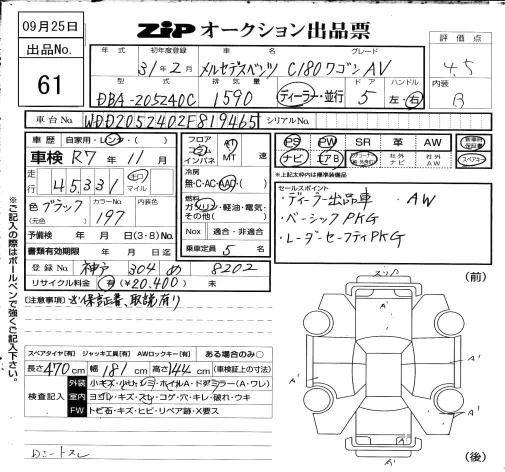 09月25日
ZIP オークション出品票
出品No.
61
年式 初年度登録 車名 グレード
31年2月 メルセデスベンツ C180ワゴン AV
型式 排気量 ドア ハンドル
DBA-205240C 1590 ディーラー・並行 5 左・右
評価点
4.5
内装
B
車台No. WDD2052402F819465 シリアルNo.
車歴 自家用・レンタ・( )
車検 R7年 11月
走行 45,331 キロ マイル
色 ブラック カラーNo. 197 内装色
(元色)
予備検 年 月 日(3・8)No.
書類有効期限 年 月 日迄
登録No. 神戸 304 め 8202
リサイクル料金 有(¥20,400) 未
フロア コラム インパネ AT MT 速
冷房
無・C・AC・AAC・( )
燃料
ガソリン・軽油・電気・
その他( )
Nox 適合・非適合
乗車定員 5 名
PS PW SR 革 AW
ナビ エアB 社外ナビ 社外AW
保証書 スペアキー
※上記太枠内は標準装備品
セールスポイント
・ディーラー出品車 ・AW
・ベーシックPKG
・レーダーセーフティPKG
[注意事項] 保証書、取説有り
※ご記入の際はボールペンで強くご記入下さい。
スペアタイヤ[有] ジャッキ工具[有] AWロックキー[有] ある場合のみ○
長さ 470cm 幅 181cm 高さ 144cm (車検証上の寸法)
検査記入
外装 小キズ・小ヒッシミ・ホイルA・ドアミラー(A・ワレ)
室内 ヨゴレ・キズ・スレ・コゲ・穴・キレ・破れ・ウキ
FW トビ石・キズ・ヒビ・リペア跡・X要ス
Dシートスレ
(前)
スリ
A'
A'
A'
A'
A'
(後)